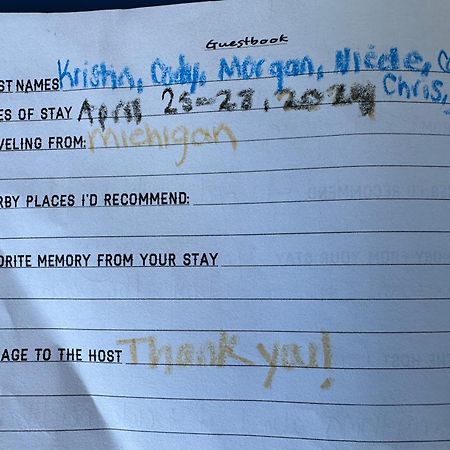 Guestbook
ST NAMES Kristin, Cody, Morgan, Nicole,
Chris,
ES OF STAY April 25-27, 2024
VELING FROM: michigan
RBY PLACES I'D RECOMMEND:
ORITE MEMORY FROM YOUR STAY
AGE TO THE HOST Thank you!